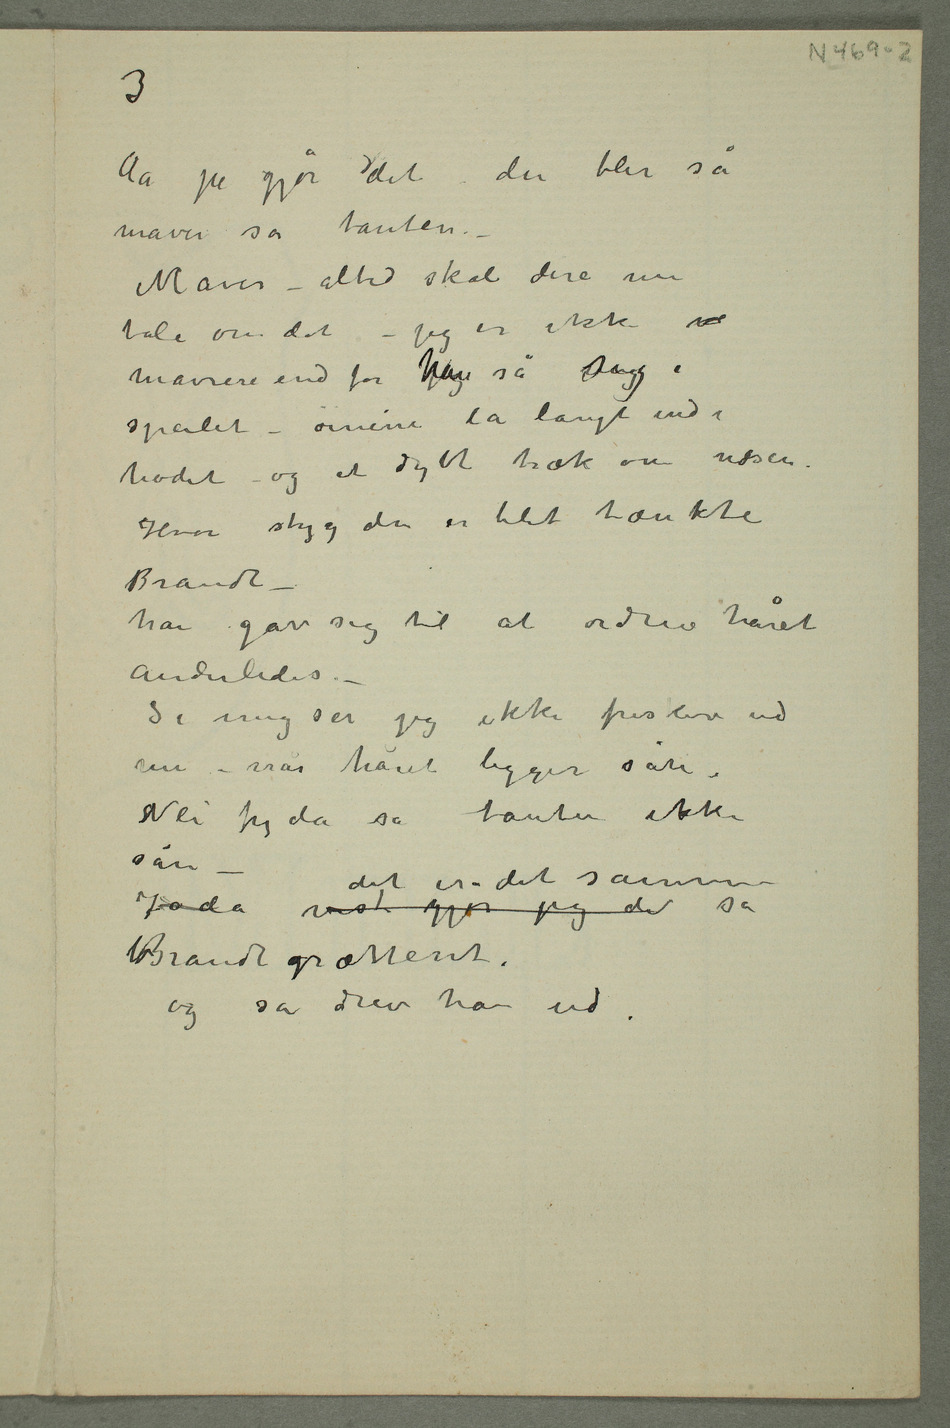 N 469-2
3
Aa je gjør det du blir så
maver sa tanten. –
Maver – altid skal dere nu
tale om det – jeg er ikke
mavrere end før Han så sig i
speilet – øinene la langt ind i
hodet – og et dybt træk om næsen.
Hvor styg du er blit tænkte
Brandt –
han gav sig til at ordne håret
anderledes. –
Se mig ser jeg ikke friskere ud
nu – når håret ligger sån.
Nei fy da sa tanten ikke
sån –
det er det samme
Joda vist gjør jeg det sa
Brandt grætterit.
og så drev han ud.